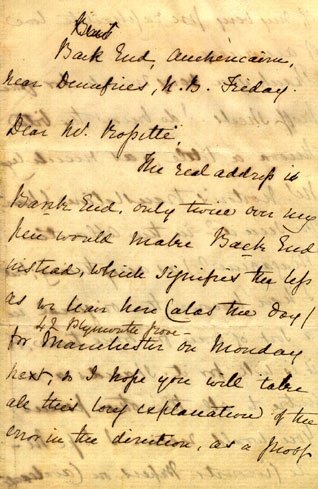 Bank
Back End, Auchencairn,
near Dumfries, N.B. Friday.
Dear Mr.
The real address is
Bank End, only twice over my
pen would make Back End
instead, which signifies the less
as we leave here (alas the day)
42 Plymouth Grove
for Manchester on Monday
next, so I hope you will take
all this long explanation of the
error in the direction, as a proof